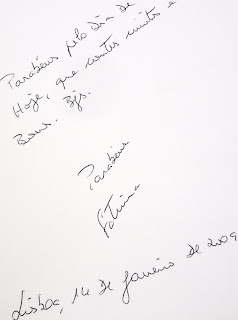 Parabéns pelo Dia de
Hoje, que contes muitos e
Bons. Bjs.
Parabéns
Fátima
Lisboa, 14 de Janeiro de 2009